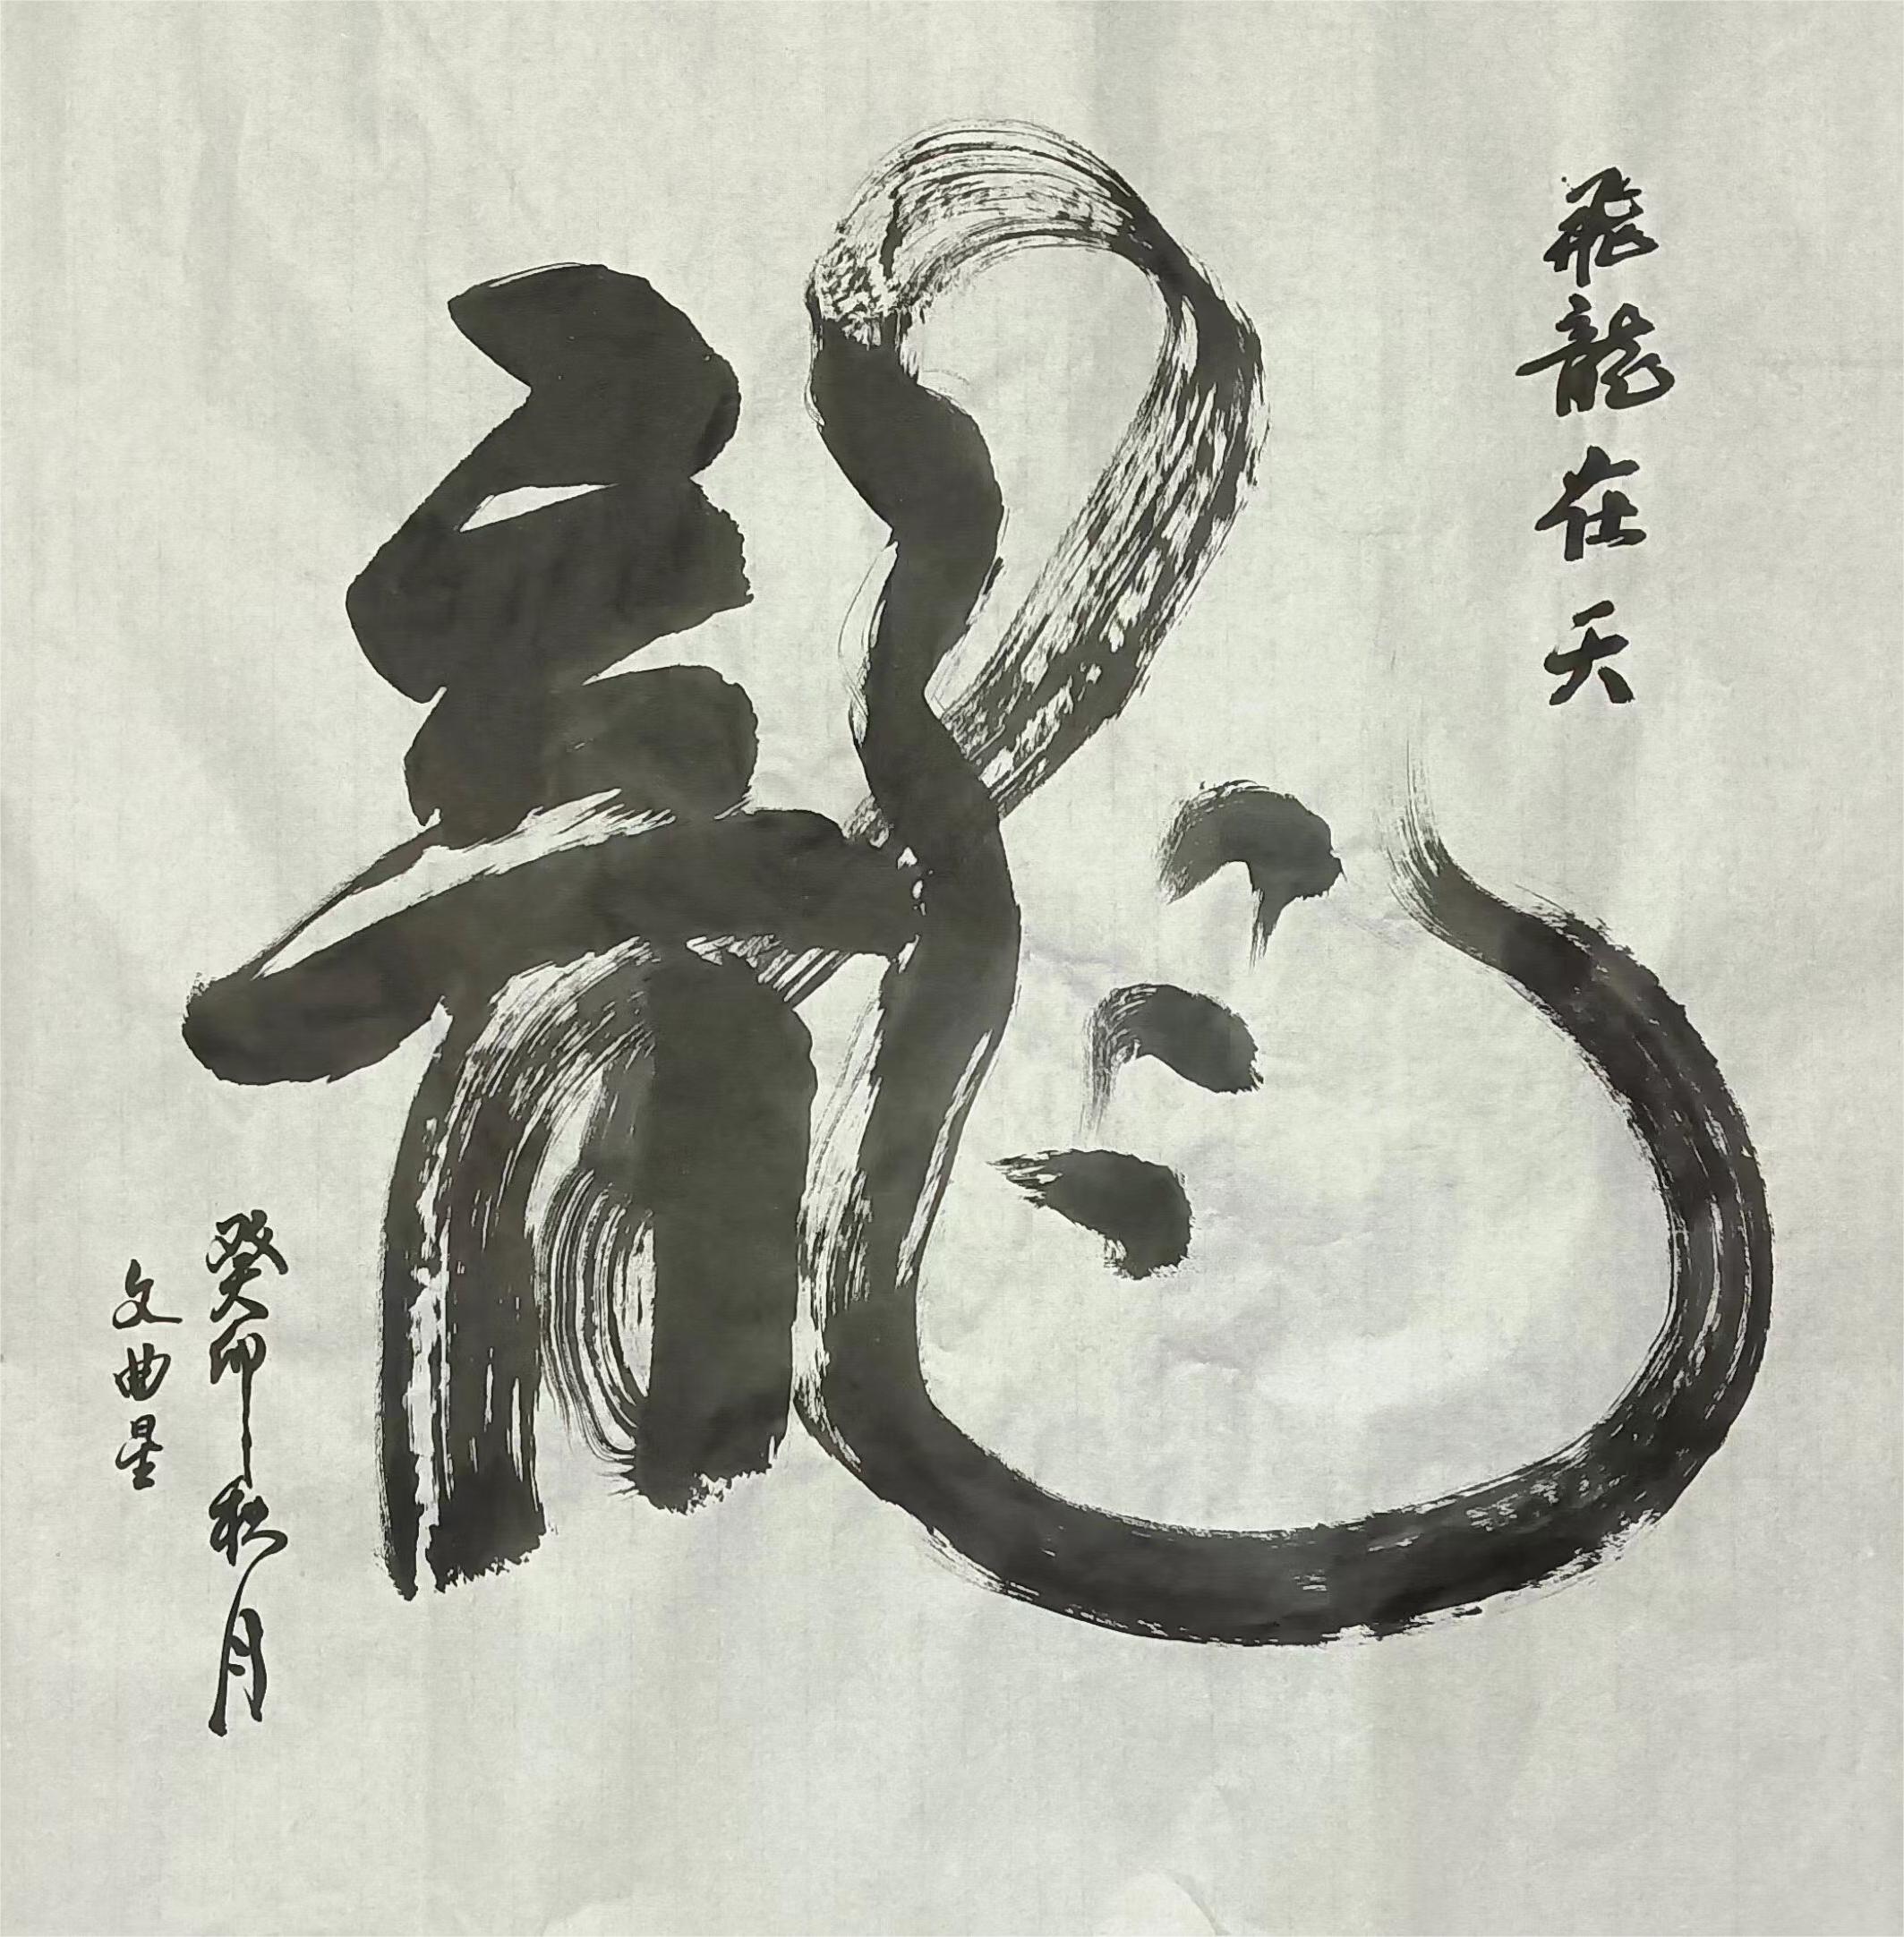 飛龍在天
龍
癸卯秋月
文曲星